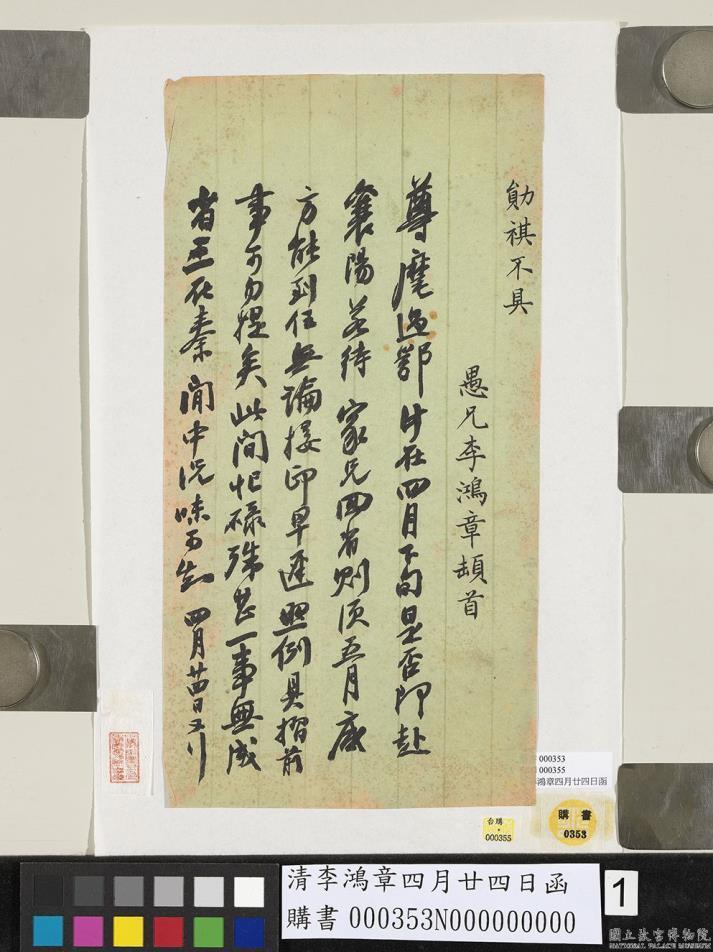 勛祺不具
愚兄李鴻章頓首
尊麾過鄂計在四月下旬是否即赴
襄陽若待 家兄回省則須五月底
方能到任無論接印早遲照例具摺前
事可勿提矣此間忙碌殊甚一事無成
省三在秦 閒中況味可知 四月廿四日又行
000353
000355
鴻章四月廿四日函
台購
000355
購書
0353
清李鴻章四月廿四日函
購書 000353N000000000
1
國立故宮博物院
NATIONAL PALACE MUSEUM